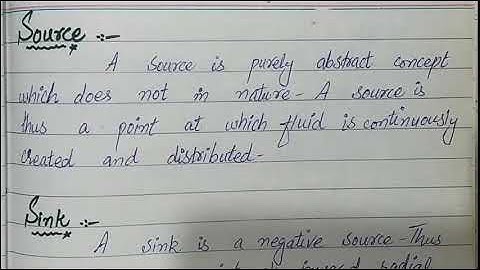 Source :-
A source is purely abstract concept
which does not in nature - A source is
thus a point at which fluid is continuously
created and distributed -
Sink :-
A sink is a negative source - Thus
inward radial